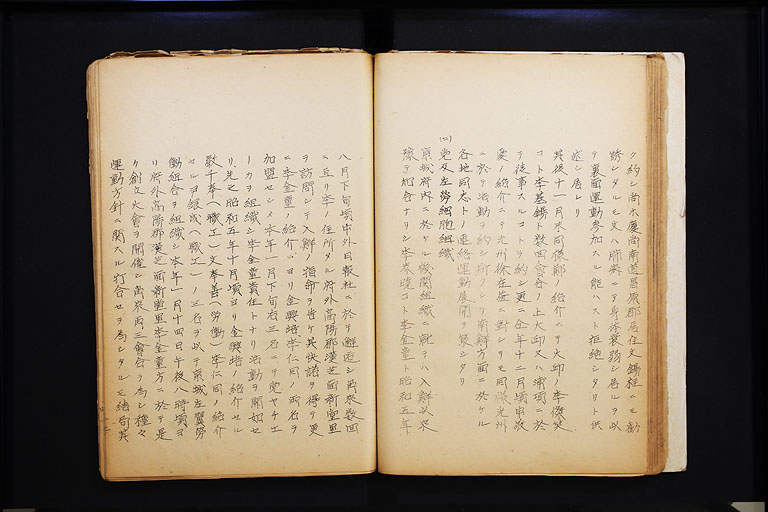 ク約シ尚本慶尚南道昌原郡居住文錫柱ニモ勧
誘シタルモ文ハ肺病ニテ身体衰弱シ居ルヲ以
テ裏面運動参加スル能ハスト拒絶シタリト供
述シ居レリ
其後十一月末同鄭ノ紹介ニテ大邱ノ李
コト李基錫ト数回会合ノ上大邱又ハ浦項ニ於
テ従事スルコトヲ約シ更ニ仝年十二月頃申
愛ノ紹介ニテ光州徐在益ニ対シテモ同様光州
ニ於テ活動ヲ約シ所アリシヲ南鮮方面ニ於ケル
各地同志トノ連絡運動展開ヲ策シタリ
(二)党及左労細胞組織
京城府内ニ於ケル機関組織ニ就テハ入鮮以来
豫テ知合ナリシ李春 コト李金童ト昭和五年
八月下旬頃中外日報社ニ於テ邂逅シ爾来数回
ニ亘リ李ノ住所タル府外高陽郡漢芝面新堂里
ヲ訪問シテ入鮮ノ指命ヲ告ケ其快諾ヲ得テ更
ニ李金童ノ紹介ニヨリ金興培李仁同ノ両名ヲ
加盟セシメ本年一月下旬右三名ニテ党ヤチエ
ーカヲ組織シ李金童責任トナリ活動ヲ開始セ
リ先之昭和五年十月頃ヨリ金興培ノ紹介セル
敬千奉(職工)文奉善(労働)李仁同ノ紹介
セル尹 (職工)ノ三名ヲ以テ京城左翼労
働組合ヲ組織シ本年一月十四日午後八時頃ヨ
リ府外高陽郡漢芝面新堂里李金童方ニ於テ是
ケ創立大会ヲ開催シ爾来両三会合ヲ為シ種々
運動方針ニ関スル打合セヲ為シタルモ結局其